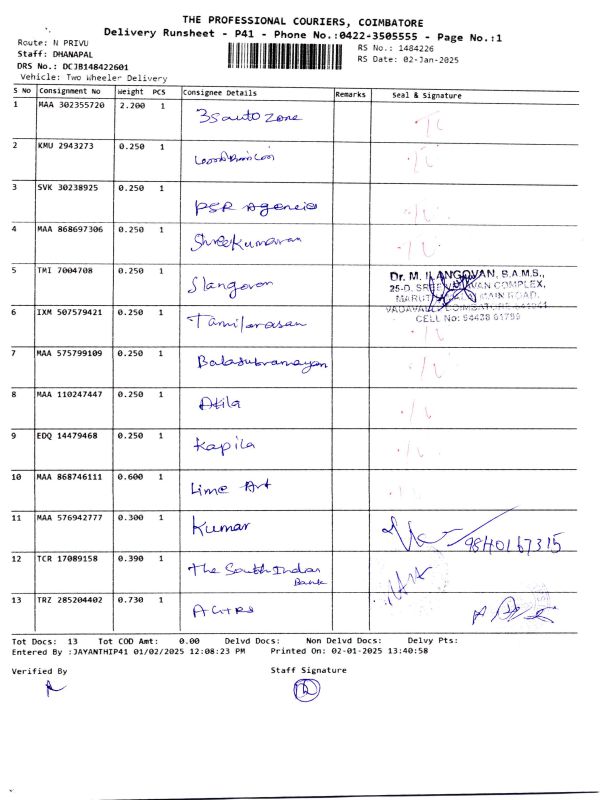 THE PROFESSIONAL COURIERS, COIMBATORE
Delivery Runsheet - P41 - Phone No.:0422-3505555 - Page No.:1
Route: N PRIVU
RS No.: 1484226
Staff: DHANAPAL
RS Date: 02-Jan-2025
DRS No.: DCJB148422601
Vehicle: Two Wheeler Delivery
S No Consignment No Weight PCS Consignee Details Remarks Seal & Signature
1 MAA 302355720 2.200 1 3S auto Zone
2 KMU 2943273 0.250 1
3 SVK 30238925 0.250 1 PSR Agencies
4 MAA 868697306 0.250 1 Shreekumaran
5 TMI 7004708 0.250 1 Slangovan
Dr. M. ILANGOVAN, B.A.M.S.,
25-D, COMPLEX,
MAIN ROAD,
CELL No: 94438 61799
6 IXM 507579421 0.250 1 Tamilarasan
7 MAA 575799109 0.250 1 Balasubramayan
8 MAA 110247447 0.250 1 Akila
9 EDQ 14479468 0.250 1 Kapila
10 MAA 868746111 0.600 1 Lime Art
11 MAA 576942777 0.300 1 Kumar 9840167315
12 TCR 17089158 0.390 1 The South Indian
Bank
13 TRZ 285204402 0.730 1
Tot Docs: 13 Tot COD Amt: 0.00 Delvd Docs: Non Delvd Docs: Delvy Pts:
Entered By :JAYANTHIP41 01/02/2025 12:08:23 PM Printed On: 02-01-2025 13:40:58
Verified By Staff Signature